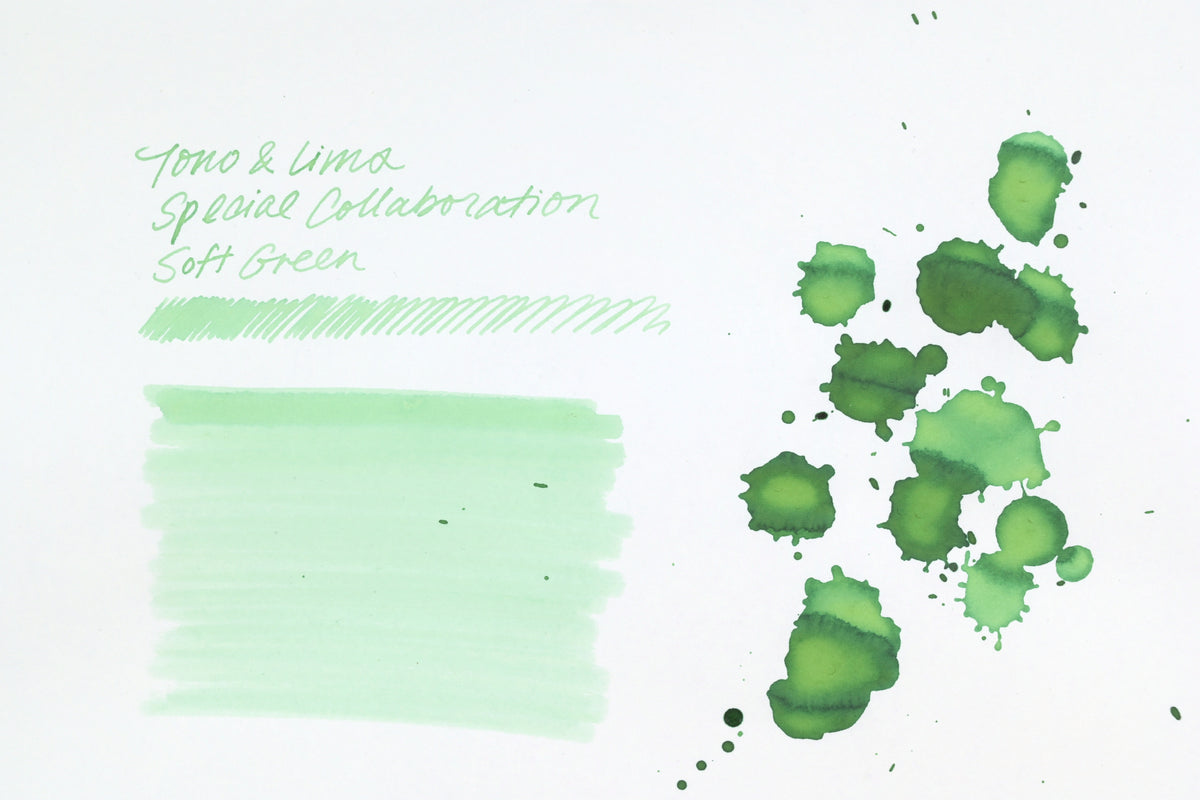 Tono & Lima
Special Collaboration
Soft Green